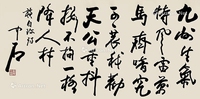 九州生氣
恃風雷萬
馬齊喑究
可哀我勸
天公重抖
擻不拘一格
降人材
龔自珍詩